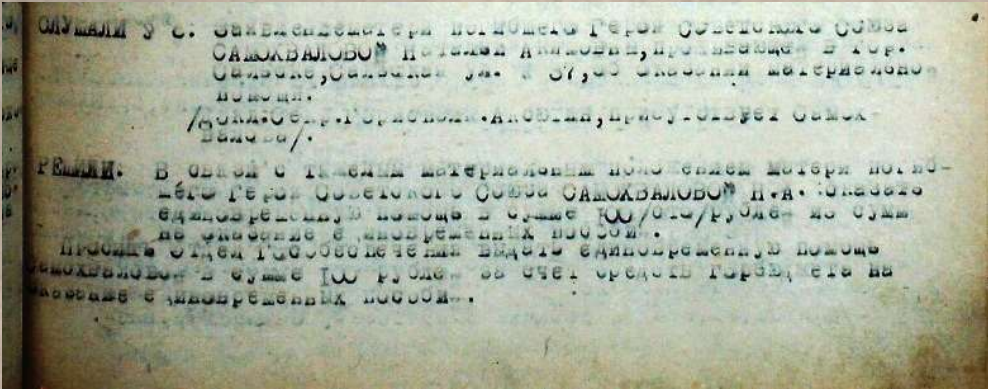 СЛУШАЛИ У С: Заявление матери погибшего Героя Советского Союза
САМОХВАЛОВОЙ Наталии Акимовны, проживающей в гор.
Сальске, Сальская ул. № 37, об оказании материально
помощи.
/Докл. Секр. Горисполк. Акользин, присутствует Самох-
валова/.
РЕШИЛИ: В связи с тяжелым материальным положением матери погиб-
шего Героя Советского Союза САМОХВАЛОВОЙ Н.А. оказать
единовременную помощь в сумме 100/сто/рублей из сумм
на оказание единовременных пособий.
Просить Отдел Гособеспечения выдать единовременную помощь
Самохваловой в сумме 100 рублей за счет средств горбюджета на
оказание единовременных пособий.